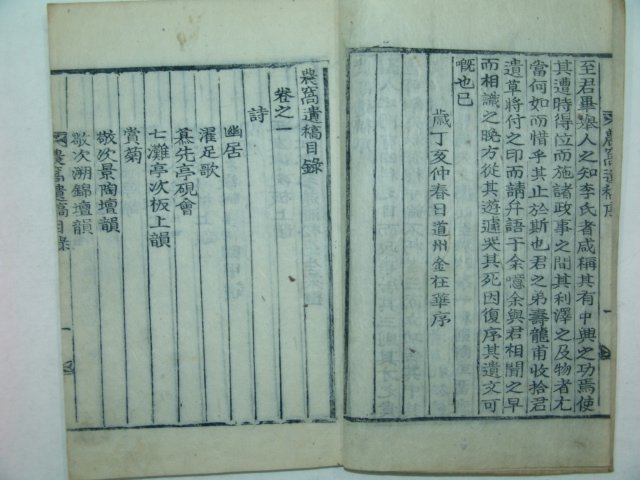 至君畢擧人之知李氏者咸稱其有中興之功焉使
其遭時得位而施諸政事之間其利澤之及物者尤
當何如而惜乎其止於斯也君之弟壽龍甫收拾君
遺草將付之印而請弁語于余噫余與君相聞之早
而相識之晚方從其遊遽哭其死因復序其遺文可
嘅也已
歲丁亥仲春日道州金在華序
農窩遺稿目錄
卷之一
詩
幽居
濯足歌
慕先亭硯會
七灘亭次板上韻
賞菊
敬次景陶壇韻
敬次溯錦壇韻
農窩遺稿目錄
一
農窩遺稿序
一